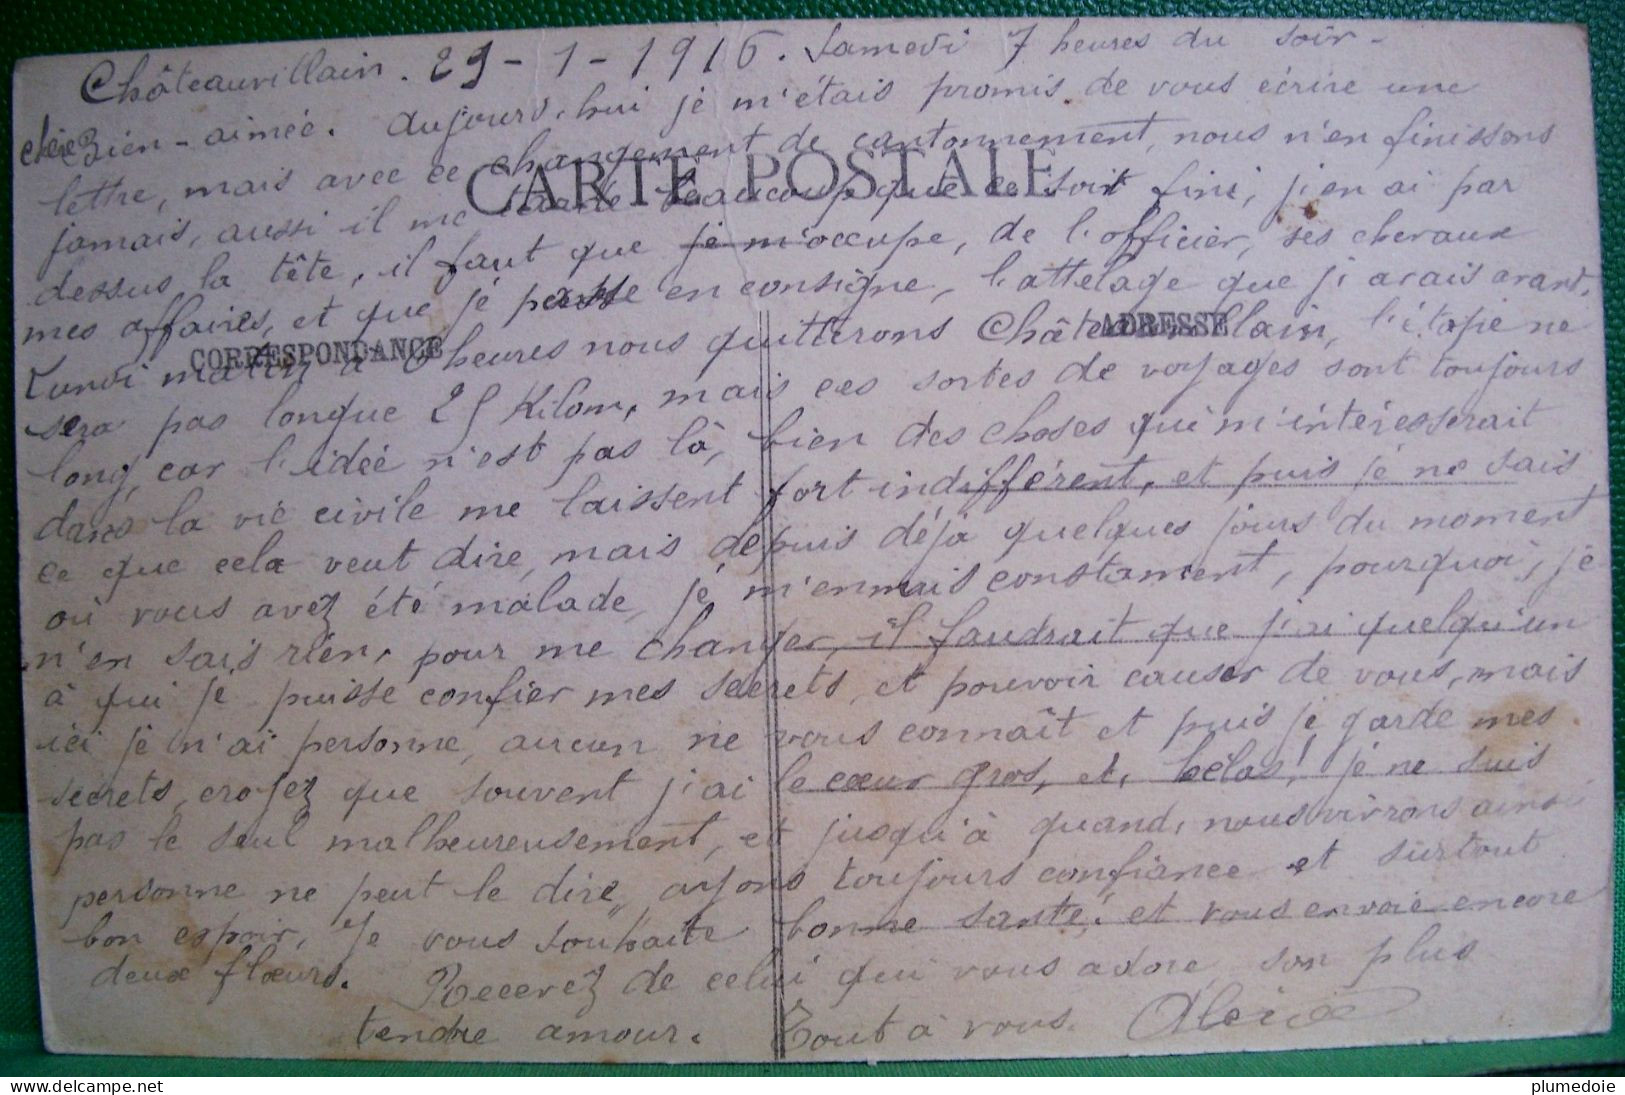 Châteauvillain. 29-1-1916. Samedi 7 heures du soir-
chère Bien-aimée. aujourd,hui je m'étais promis de vous écrire une
lettre, mais avec ce changement de cantonnement, nous n'en finissons
CARTE POSTALE
jamais, aussi il me tarde beaucoup que ce soit fini, j'en ai par
dessus la tête, il faut que je m'occupe, de l'officier, ses chevaux
mes affaires, et que je passe en consigne, l'attelage que j'avais avant.
CORRESPONDANCE
ADRESSE
Lundi matin à 8 heures nous quitterons Châteauvillain, l'étape ne
sera pas longue 25 Kilom, mais ces sortes de voyages sont toujours
long, car l'idée n'est pas là, bien des choses qui m'intéresserait
dans la vie civile me laissent fort indifférent, et puis je ne sais
ce que cela veut dire, mais depuis déjà quelques jours du moment
où vous avez été malade, je m'ennuis constament, pourquoi, je
n'en sais rien, pour me changer, il faudrait que j'ai quelqu'un
à qui je puisse confier mes secrets, et pouvoir causer de vous, mais
ici je n'ai personne, aucun ne vous connaît et puis je garde mes
secrets, croyez que souvent j'ai le cœur gros, et, hélas! je ne suis
pas le seul malheureusement, et jusqu'à quand, nous vivrons ainsi
personne ne peut le dire, ayons toujours confiance et surtout
bon espoir, Je vous souhaite bonne santé, et vous envoie encore
deux flœurs. Recevez de celui qui vous adore son plus
tendre amour. Tout à vous.
plumedoie